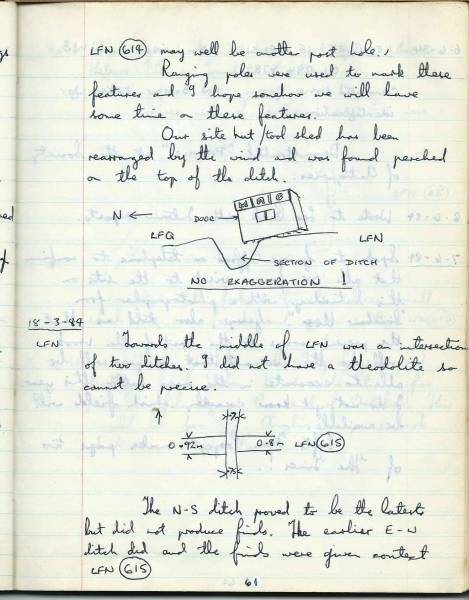 LFN 614 may well be another post hole.
Ranging poles were used to mark these
features and I hope somehow we will have
some time on these features.
Our site hut/tool shed has been
rearranged by the wind and was found perched
on the top of the ditch.
N ←
DOOR
HAG
LFQ
LFN
SECTION OF DITCH
NO EXAGGERATION !
18-3-84
LFN
Towards the middle of LFN was an intersection
of two ditches. I did not have a theodolite so
cannot be precise.
0.92m
0.8m
LFN 615
The N-S ditch proved to be the latest
but did not produce finds. The earlier E-W
ditch did and the finds were given context
LFN 615
61